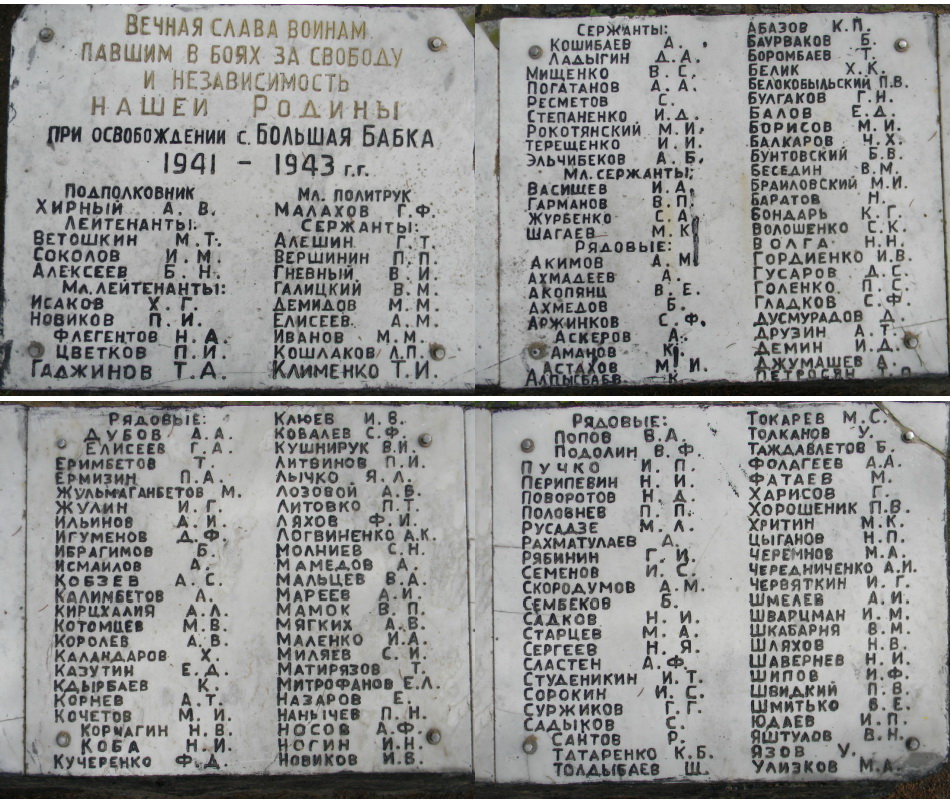 ВЕЧНАЯ СЛАВА ВОИНАМ
ПАВШИМ В БОЯХ ЗА СВОБОДУ
И НЕЗАВИСИМОСТЬ
НАШЕЙ РОДИНЫ
ПРИ ОСВОБОЖДЕНИИ С. БОЛЬШАЯ БАБКА
1941 - 1943 г.г.
ПОДПОЛКОВНИК
ХИРНЫЙ А. В.
ЛЕЙТЕНАНТЫ:
ВЕТОШКИН М.Т.
СОКОЛОВ И.М.
АЛЕКСЕЕВ Б.Н.
МЛ.ЛЕЙТЕНАНТЫ:
ИСАКОВ Х.Г.
НОВИКОВ П.И.
ФЛЕГЕНТОВ Н.А.
ЦВЕТКОВ П.И.
ГАДЖИНОВ Т.А.
МЛ. ПОЛИТРУК
МАЛАХОВ Г.Ф.
СЕРЖАНТЫ:
АЛЕШИН Г.Т.
ВЕРШИНИН П.П.
ГНЕВНЫЙ В.И.
ГАЛИЦКИЙ В.М.
ДЕМИДОВ М.М.
ЕЛИСЕЕВ А.М.
ИВАНОВ М.М.
КОШЛАКОВ Л.П.
КЛИМЕНКО Т.И.
СЕРЖАНТЫ:
КОШИБАЕВ А.
ЛАДЫГИН Д.А.
МИЩЕНКО В.С.
ПОГАТАНОВ А.А.
РЕСМЕТОВ С.
СТЕПАНЕНКО И.Д.
РОКОТЯНСКИЙ М.И.
ТЕРЕЩЕНКО И.И.
ЭЛЬЧИБЕКОВ А.Б.
МЛ.СЕРЖАНТЫ:
ВАСИЩЕВ И.А.
ГАРМАНОВ В.П.
ЖУРБЕНКО С.А.
ШАГАЕВ М.К.
РЯДОВЫЕ:
АКИМОВ А.М.
АХМАДЕЕВ А.
АКОПЯНЦ В.Е.
АХМЕДОВ Б.
АРЖИНКОВ С.Ф.
АСКЕРОВ А.
АМАНОВ К.
АСТАХОВ М.И.
АЛПЫСБАЕВ К.
АБАЗОВ К.П.
БАУРВАКОВ Б.
БОРОМБАЕВ Т.
БЕЛИК Х.К.
БЕЛОКОБЫЛЬСКИЙ П.В.
БУЛГАКОВ Г.Н.
БАЛОВ Е.Д.
БОРИСОВ М.И.
БАЛКАРОВ Ч.Х.
БУНТОВСКИЙ Б.В.
БЕСЕДИН В.М.
БРАИЛОВСКИЙ М.И.
БАРАТОВ Н.
БОНДАРЬ К.Г.
ВОЛОШЕНКО С.К.
ВОЛГА Н.Н.
ГОРДИЕНКО И.В.
ГУСАРОВ Д.С.
ГОЛЕНКО П.С.
ГЛАДКОВ С.Ф.
ДУСМУРАДОВ Д.
ДРУЗИН А.Т.
ДЕМИН И.Д.
ДЖУМАШЕВ А.
ПЕТРОСЯН
РЯДОВЫЕ:
ДУБОВ А.А.
ЕЛИСЕЕВ Г.А.
ЕРИМБЕТОВ Т.
ЕРМИЗИН П.А.
ЖУЛЬМАГАНБЕТОВ М.
ЖУЛИН И.Г.
ИЛЬИНОВ А.И.
ИГУМЕНОВ Д.Ф.
ИБРАГИМОВ Б.
ИСМАИЛОВ А.
КОБЗЕВ А.С.
КАЛИМБЕТОВ Л.
КИРЦХАЛИЯ А.Л.
КОТОМЦЕВ М.В.
КОРОЛЕВ А.В.
КАЛАНДАРОВ Х.
КАЗУТИН Е.Д.
КДЫРБАЕВ К.
КОРНЕВ А.Т.
КОЧЕТОВ М.И.
КОРЧАГИН Н.В.
КОБА Н.И.
КУЧЕРЕНКО Ф.Д.
КЛЮЕВ И.В.
КОВАЛЕВ С.Ф.
КУШНИРУК В.И.
ЛИТВИНОВ П.И.
ЛЫЧКО Я.Л.
ЛОЗОВОЙ А.Б.
ЛИТОВКО П.Т.
ЛЯХОВ Ф.И.
ЛОГВИНЕНКО А.К.
МОЛНИЕВ С.Н.
МАМЕДОВ А.
МАЛЬЦЕВ В.А.
МАРЕЕВ А.И.
МАМОК В.П.
МЯГКИХ А.В.
МАЛЕНКО И.А.
МИЛЯЕВ С.И.
МАТИРЯЗОВ Т.
МИТРОФАНОВ Е.Л.
НАЗАРОВ Е.
НАНЫЧЕВ П.Н.
НОСОВ А.Ф.
НОГИН И.Н.
НОВИКОВ И.В.
РЯДОВЫЕ:
ПОПОВ В.А.
ПОДОЛИН В.Ф.
ПУЧКО И.П.
ПЕРИПЕВИН Н.И.
ПОВОРОТОВ Н.Д.
ПОЛОВНЕВ П.П.
РУСАДЗЕ М.Л.
РАХМАТУЛАЕВ А.
РЯБИНИН Г.И.
СЕМЕНОВ И.С.
СКОРОДУМОВ А.М.
СЕМБЕКОВ Б.
САДКОВ Н.И.
СТАРЦЕВ М.А.
СЕРГЕЕВ Н.Я.
СЛАСТЕН А.Ф.
СТУДЕНИКИН И.Т.
СОРОКИН И.С.
СУРЖИКОВ Г.Г.
САДЫКОВ С.
САНТОВ Р.
ТАТАРЕНКО К.Б.
ТОЛДЫБАЕВ Ш.
ТОКАРЕВ М.С.
ТОЛКАНОВ У.
ТАЖДАВЛЕТОВ Б.
ФОЛАГЕЕВ А.А.
ФАТАЕВ М.
ХАРИСОВ Г.
ХОРОШЕНИК П.В.
ХРИТИН М.К.
ЦЫГАНОВ Н.П.
ЧЕРЕМНОВ М.А.
ЧЕРЕДНИЧЕНКО А.И.
ЧЕРВЯТКИН И.Г.
ШМЕЛЕВ А.И.
ШВАРЦМАН И.М.
ШКАБАРНЯ В.М.
ШЛЯХОВ Н.В.
ШАВЕРНЕВ Н.И.
ШИПОВ И.Ф.
ШВИДКИЙ П.В.
ШМИТЬКО В.Е.
ЮДАЕВ И.П.
ЯШТУЛОВ В.Н.
ЯЗОВ У.
УЛИЗКОВ М.А.